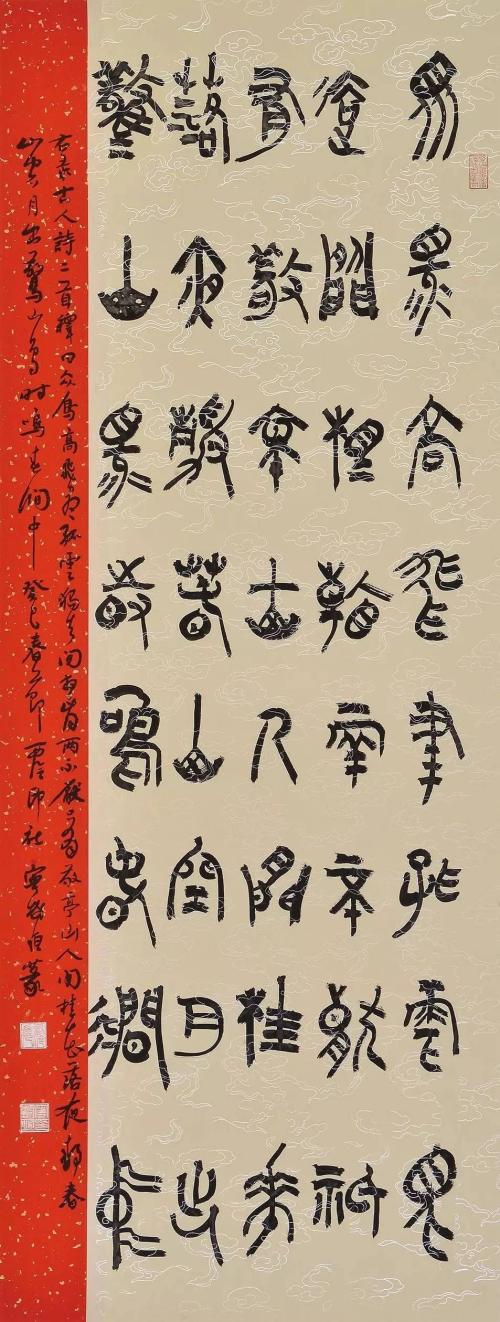 眾鳥高飛盡孤雲獨
去閒相看兩不厭祇
有敬亭山人閒桂花
落夜靜春山空月出
驚山鳥時鳴春澗中
右录古人詩二首釋曰众鳥高飛尽孤雲獨去闲相看两不厭只有敬亭山人闲桂花落夜靜春
山空月出驚山鳥時鳴春澗中 癸巳春节 西泠印社 篆